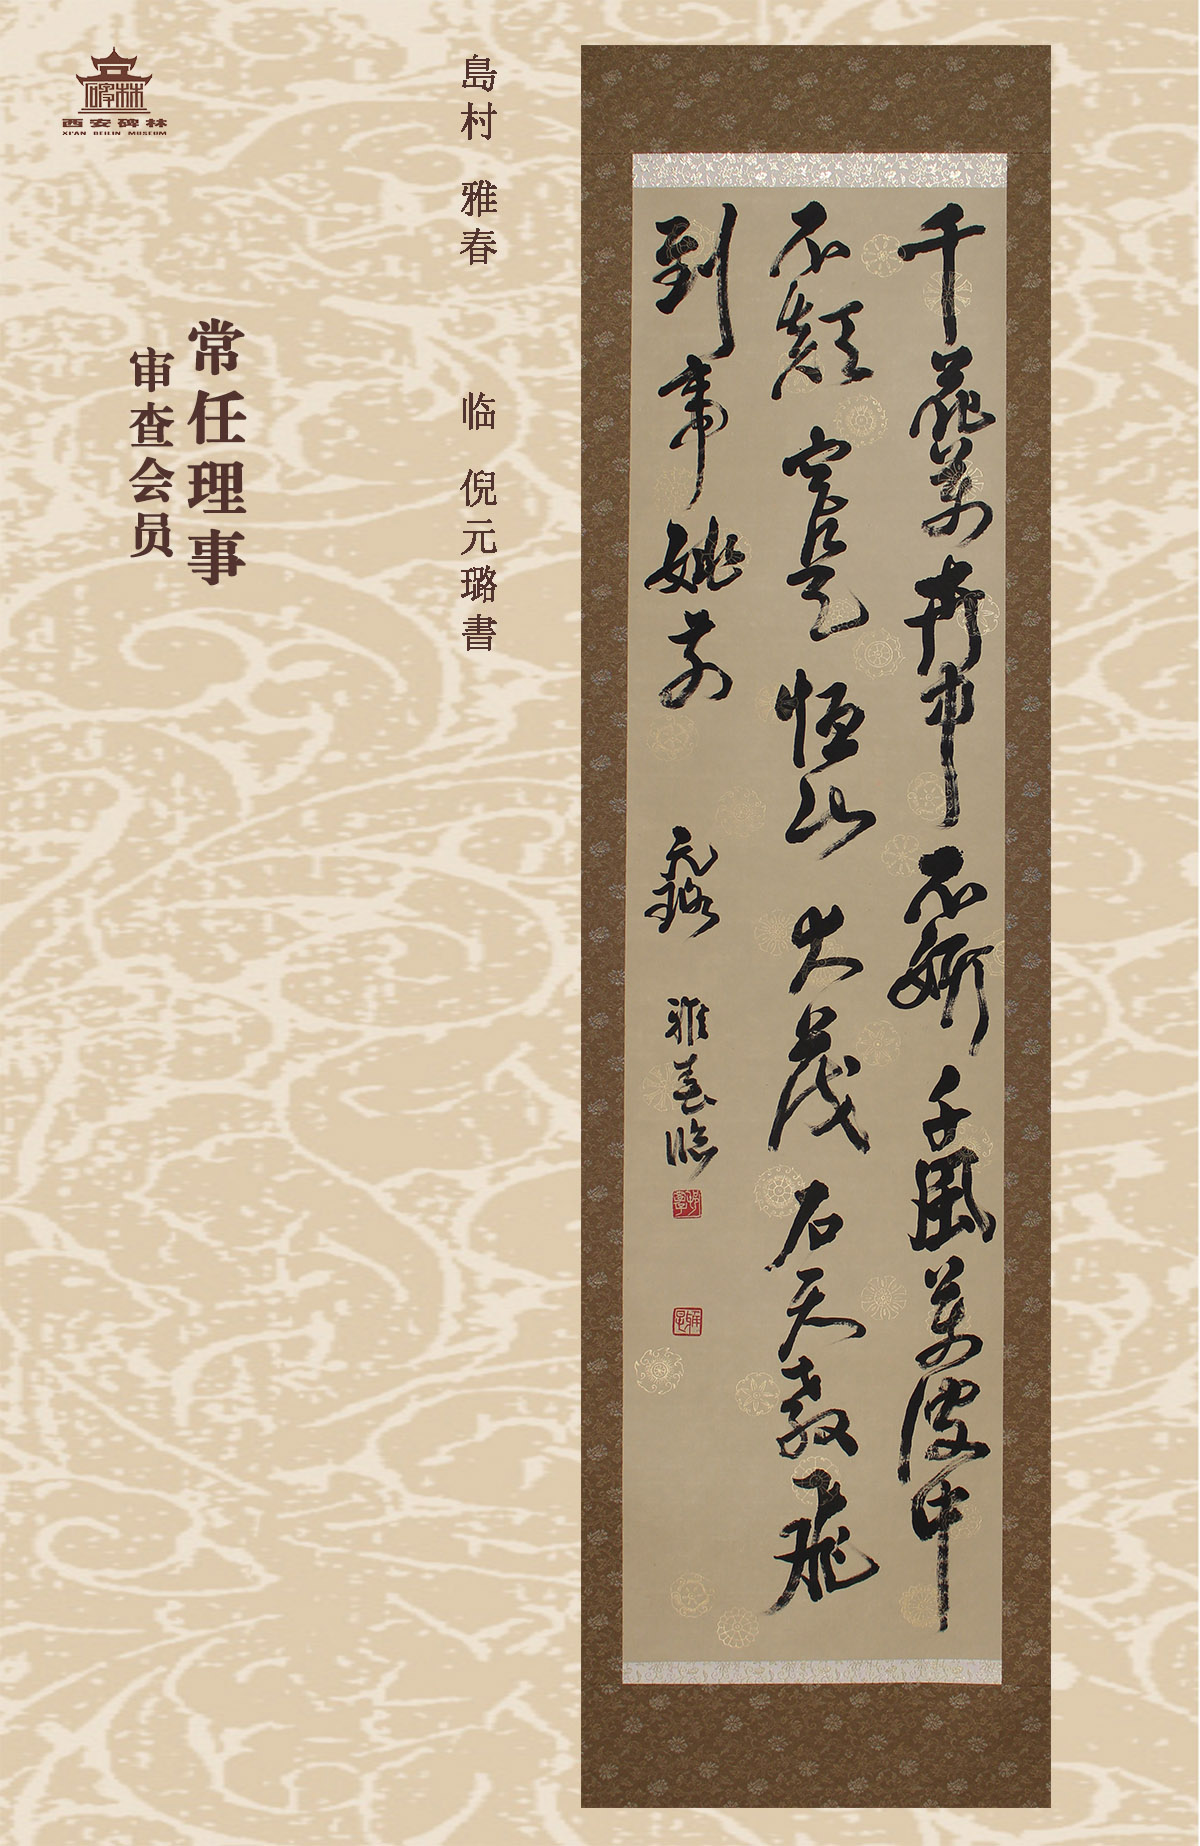 西安碑林
XI'AN BEILIN MUSEUM
島村 雅春 临 倪元璐書
常任理事
审查会员
千花萬卉中不妍千風萬波中
不顛定是恒山大茂石天教飛
到帝姚前 元璐 雅春臨